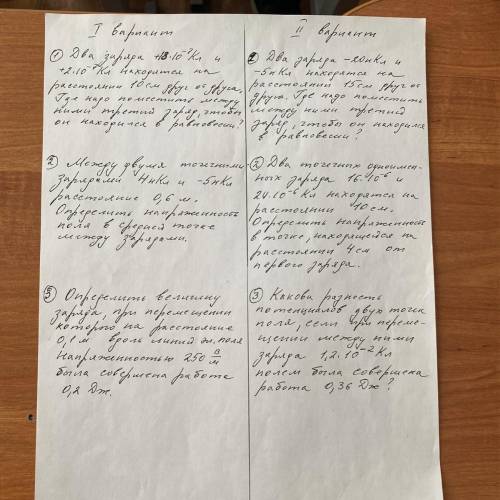 I вариант
① Два заряда +8·10⁻⁹Кл и
+2·10⁻⁹Кл находятся на
расстоянии 10см друг от друга.
Где надо поместить между
ними третий заряд, чтобы
он находился в равновесии?
② Между двумя точечными
зарядами 4нКл и -5нКл
расстояние 0,6 м.
Определить напряженность
поля в средней точке
между зарядами.
③ Определить величину
заряда, при перемещении
которого на расстояние
0,1 м вдоль линий эл. поля
напряженностью 250 В/м
была совершена работа
0,2 Дж.
II вариант
① Два заряда -20нКл и
-5нКл находятся на
расстоянии 15см друг от
друга. Где надо поместить
между ними третий
заряд, чтобы он находился
в равновесии?
② Два точечных одноимен-
ных заряда 16·10⁻⁶ и
24·10⁻⁶Кл находятся на
расстоянии 10 см.
Определить напряженность
в точке, находящейся на
расстоянии 4 см от
первого заряда.
③ Какова разность
потенциалов двух точек
поля, если при переме-
щении между ними
заряда 1,2·10⁻²Кл
полем была совершена
работа 0,36 Дж?